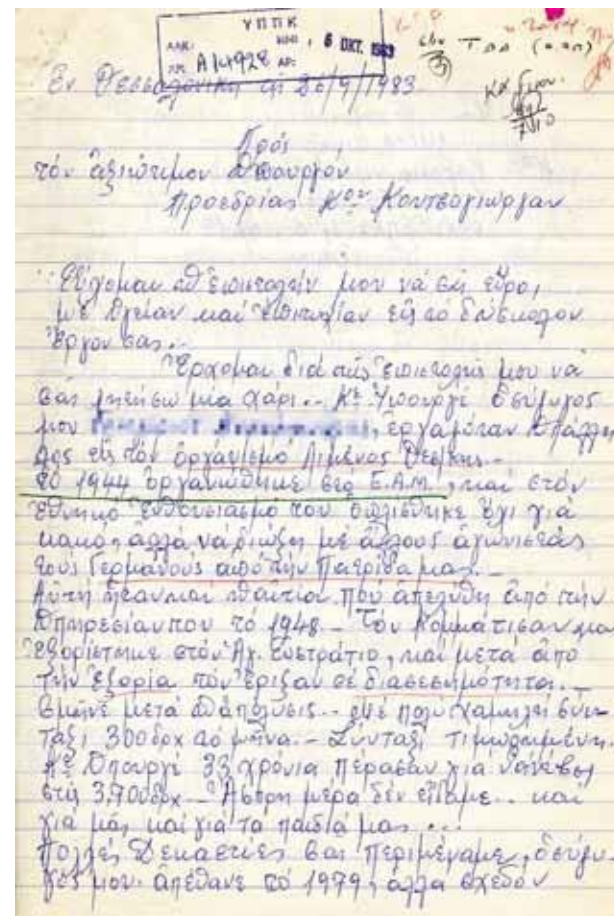 ΥΠΠΚ
6 ΟΚΤ. 1983
Α14928
Εν Θεσσαλονίκη τη 26/9/1983
Πρός
τόν ἀξιότιμον Ὑπουργόν
Προεδρίας Κον Κουτσογιώργαν
Εὔχομαι ἡ ἐπιστολήν μου νά σᾶς εὕρο,
μέ Ὑγείαν καί ἐπιτυχίαν εἰς τό δύσκολον
Ἔργον σας..
Ἔρχομαι διά τῆς ἐπιστολῆς μου νά
σᾶς ζητήσω μια χάρι.. Κε Ὑπουργέ ὁ σύζυγος
μου ἐργαζόταν Ὑπάλλη
λος εἰς τόν ὀργανισμό Λιμένος Θεσ/κης..
Τό 1944 ὀργανώθηκε στο Ε.Α.Μ., καί στόν
ἐθνικό ἐνθουσιασμό του ὁπλίσθηκε ὄχι γιά
κακό, ἀλλά νά διώξη μέ ἄλλους ἀγωνιστάς
τούς Γερμανους από τήν Πατρίδα μας.
Αὐτή ἦταν και ἡ αἰτία πού ἀπελύθη ἀπό τήν
Ὑπηρεσίαν του τό 1948.. Τόν κομμάτισαν και
ἐξορίστηκε στόν Ἁγ. Εὐστράτιο, καί μετά ἀπό
τήν ἐξορία τόν ἔριξαν σέ διασεσημότητα.
6μῆνε μετά ἀπόλυσις.. μέ πολύ χαμηλή σύν
ταξι 300δρχ τό μῆνα.. Σύνταξι τιμωρημένη.
Κε Ὑπουργέ 33 χρόνια πέρασαν γιά ν' ἀνέβει
στις 3.700δρχ.. Ἄσπρη μέρα δέν εἴδαμε.. και
γιά μάς καί γιά τα παιδιά μας...
Πολλές Δεκαετίες σας περιμέναμε, ὁ σύζυ-
γός μου ἀπέθανε τό 1979, ἀλλά σχεδόν